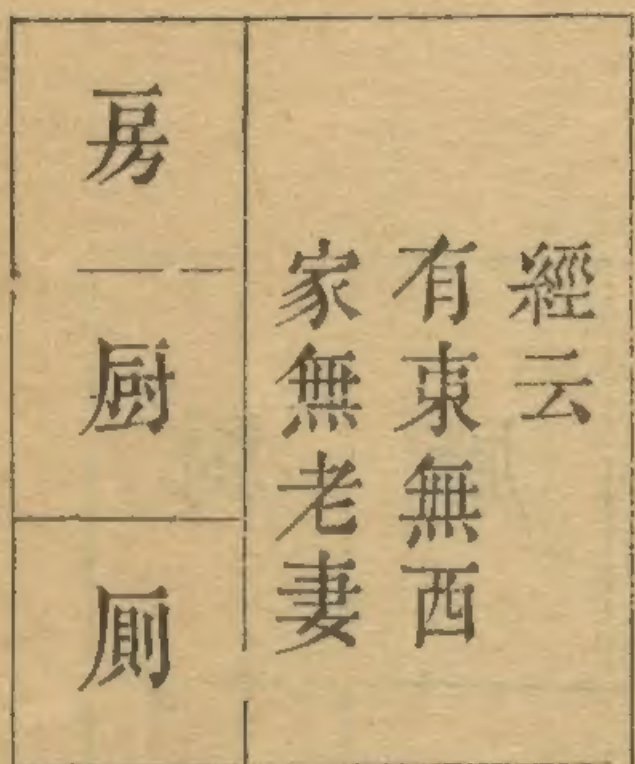 經云
有東無西
家無老妻
房
厨
厠